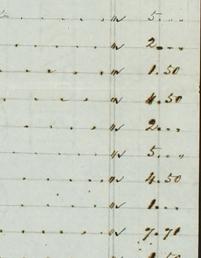 " 5...
" 2...
" 1.50
" 4.50
" 2...
" 5...
" 4.50
" 1...
" 7.70